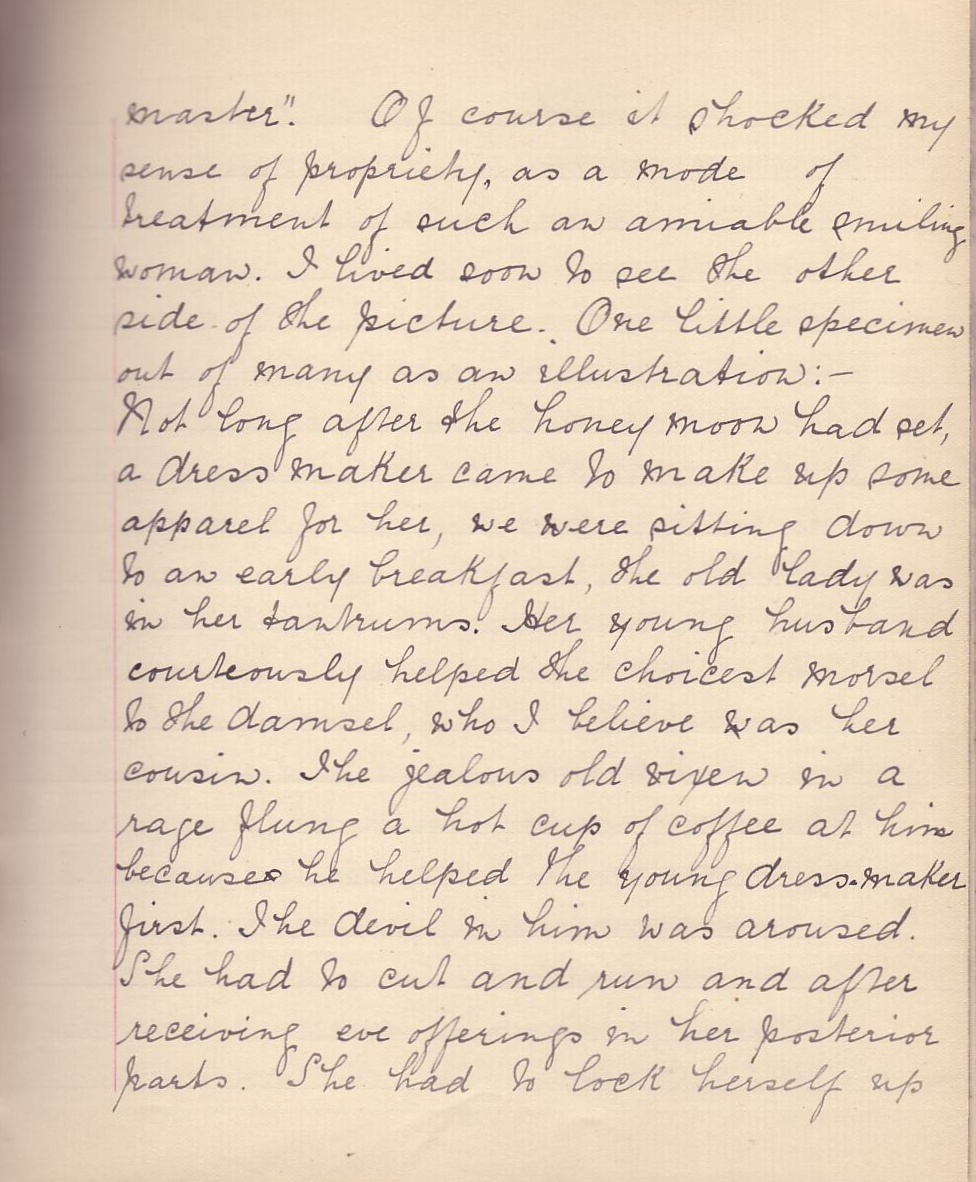 master". Of course it shocked my
sense of propriety, as a mode of
treatment of such an amiable smiling
woman. I lived soon to see the other
side of the picture. One little specimen
out of many as an illustration:-
Not long after the honey moon had set,
a dress maker came to make up some
apparel for her, we were sitting down
to an early breakfast, the old lady was
in her tantrums. Her young husband
courteously helped the choicest morsel
to the damsel, who I believe was her
cousin. The jealous old vixen in a
rage flung a hot cup of coffee at him
because he helped the young dress-maker
first. The devil in him was aroused.
She had to cut and run and after
receiving eve offerings in her posterior
parts. She had to lock herself up